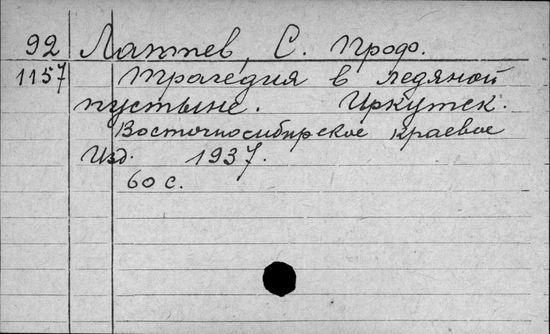 92 Лаптев, С. Проф.
1157 Трагедия в ледяной
пустыне. Иркутск.
Восточносибирское краевое
Изд. 1937.
60 с.